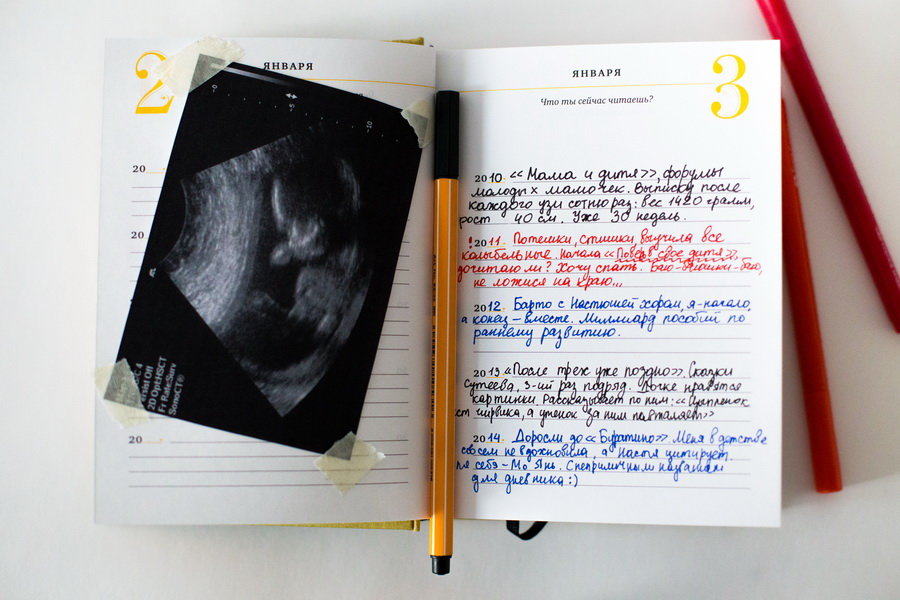 2
ЯНВАРЯ
20
20
20
-0
-5
-10
C 4
sist Off
2D OptHSCT
Fr RateSurv
SonoCT®
ЯНВАРЯ
3
Что ты сейчас читаешь?
2010. «Мама и дитя», форумы
молодых мамочек. Выписку после
каждого узи сотню раз: вес 1420 грамм,
рост 40 см. Уже 30 недель.
! 2011. Потешки, стишки, выучила все
колыбельные. Начала «Поверь в свое дитя»,
дочитаю ли? Хочу спать. Баю-баюшки-баю,
не ложися на краю...
2012. Барто с Настюшей хором, я - начало,
а конец - вместе. Миллиард пособий по
раннему развитию.
2013 «После трех уже поздно». Сказки
Сутеева, 3-ий раз подряд. Дочке нравятся
картинки. Рассказывает по ним: «Цыпленок
ест чирвика, а утенок за ним
2014. Доросли до «Буратино». Меня в детстве
совсем не вдохновила, а Настя цитирует.
себя - Мо Янь. С неприличным названием
для дневника :)